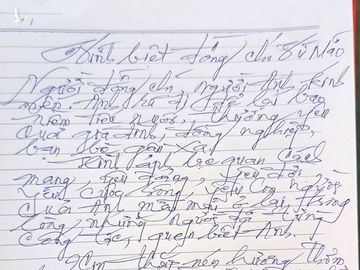 Vĩnh biệt đồng chí Tư Não
Người đồng chí, người Anh, kính
mến. Anh ra đi để lại bao
niềm tiếc nuối, thương yêu
của gia đình, đồng nghiệp,
bạn bè gần xa.
Hình ảnh lạc quan cách
mạng, yêu đồng, yêu đời
yêu cuộc sống, yêu con người
của Anh mãi mãi ở lại trong
lòng những người đã từng
công tác, quen biết Anh.
Xin thắp nén hương thơm